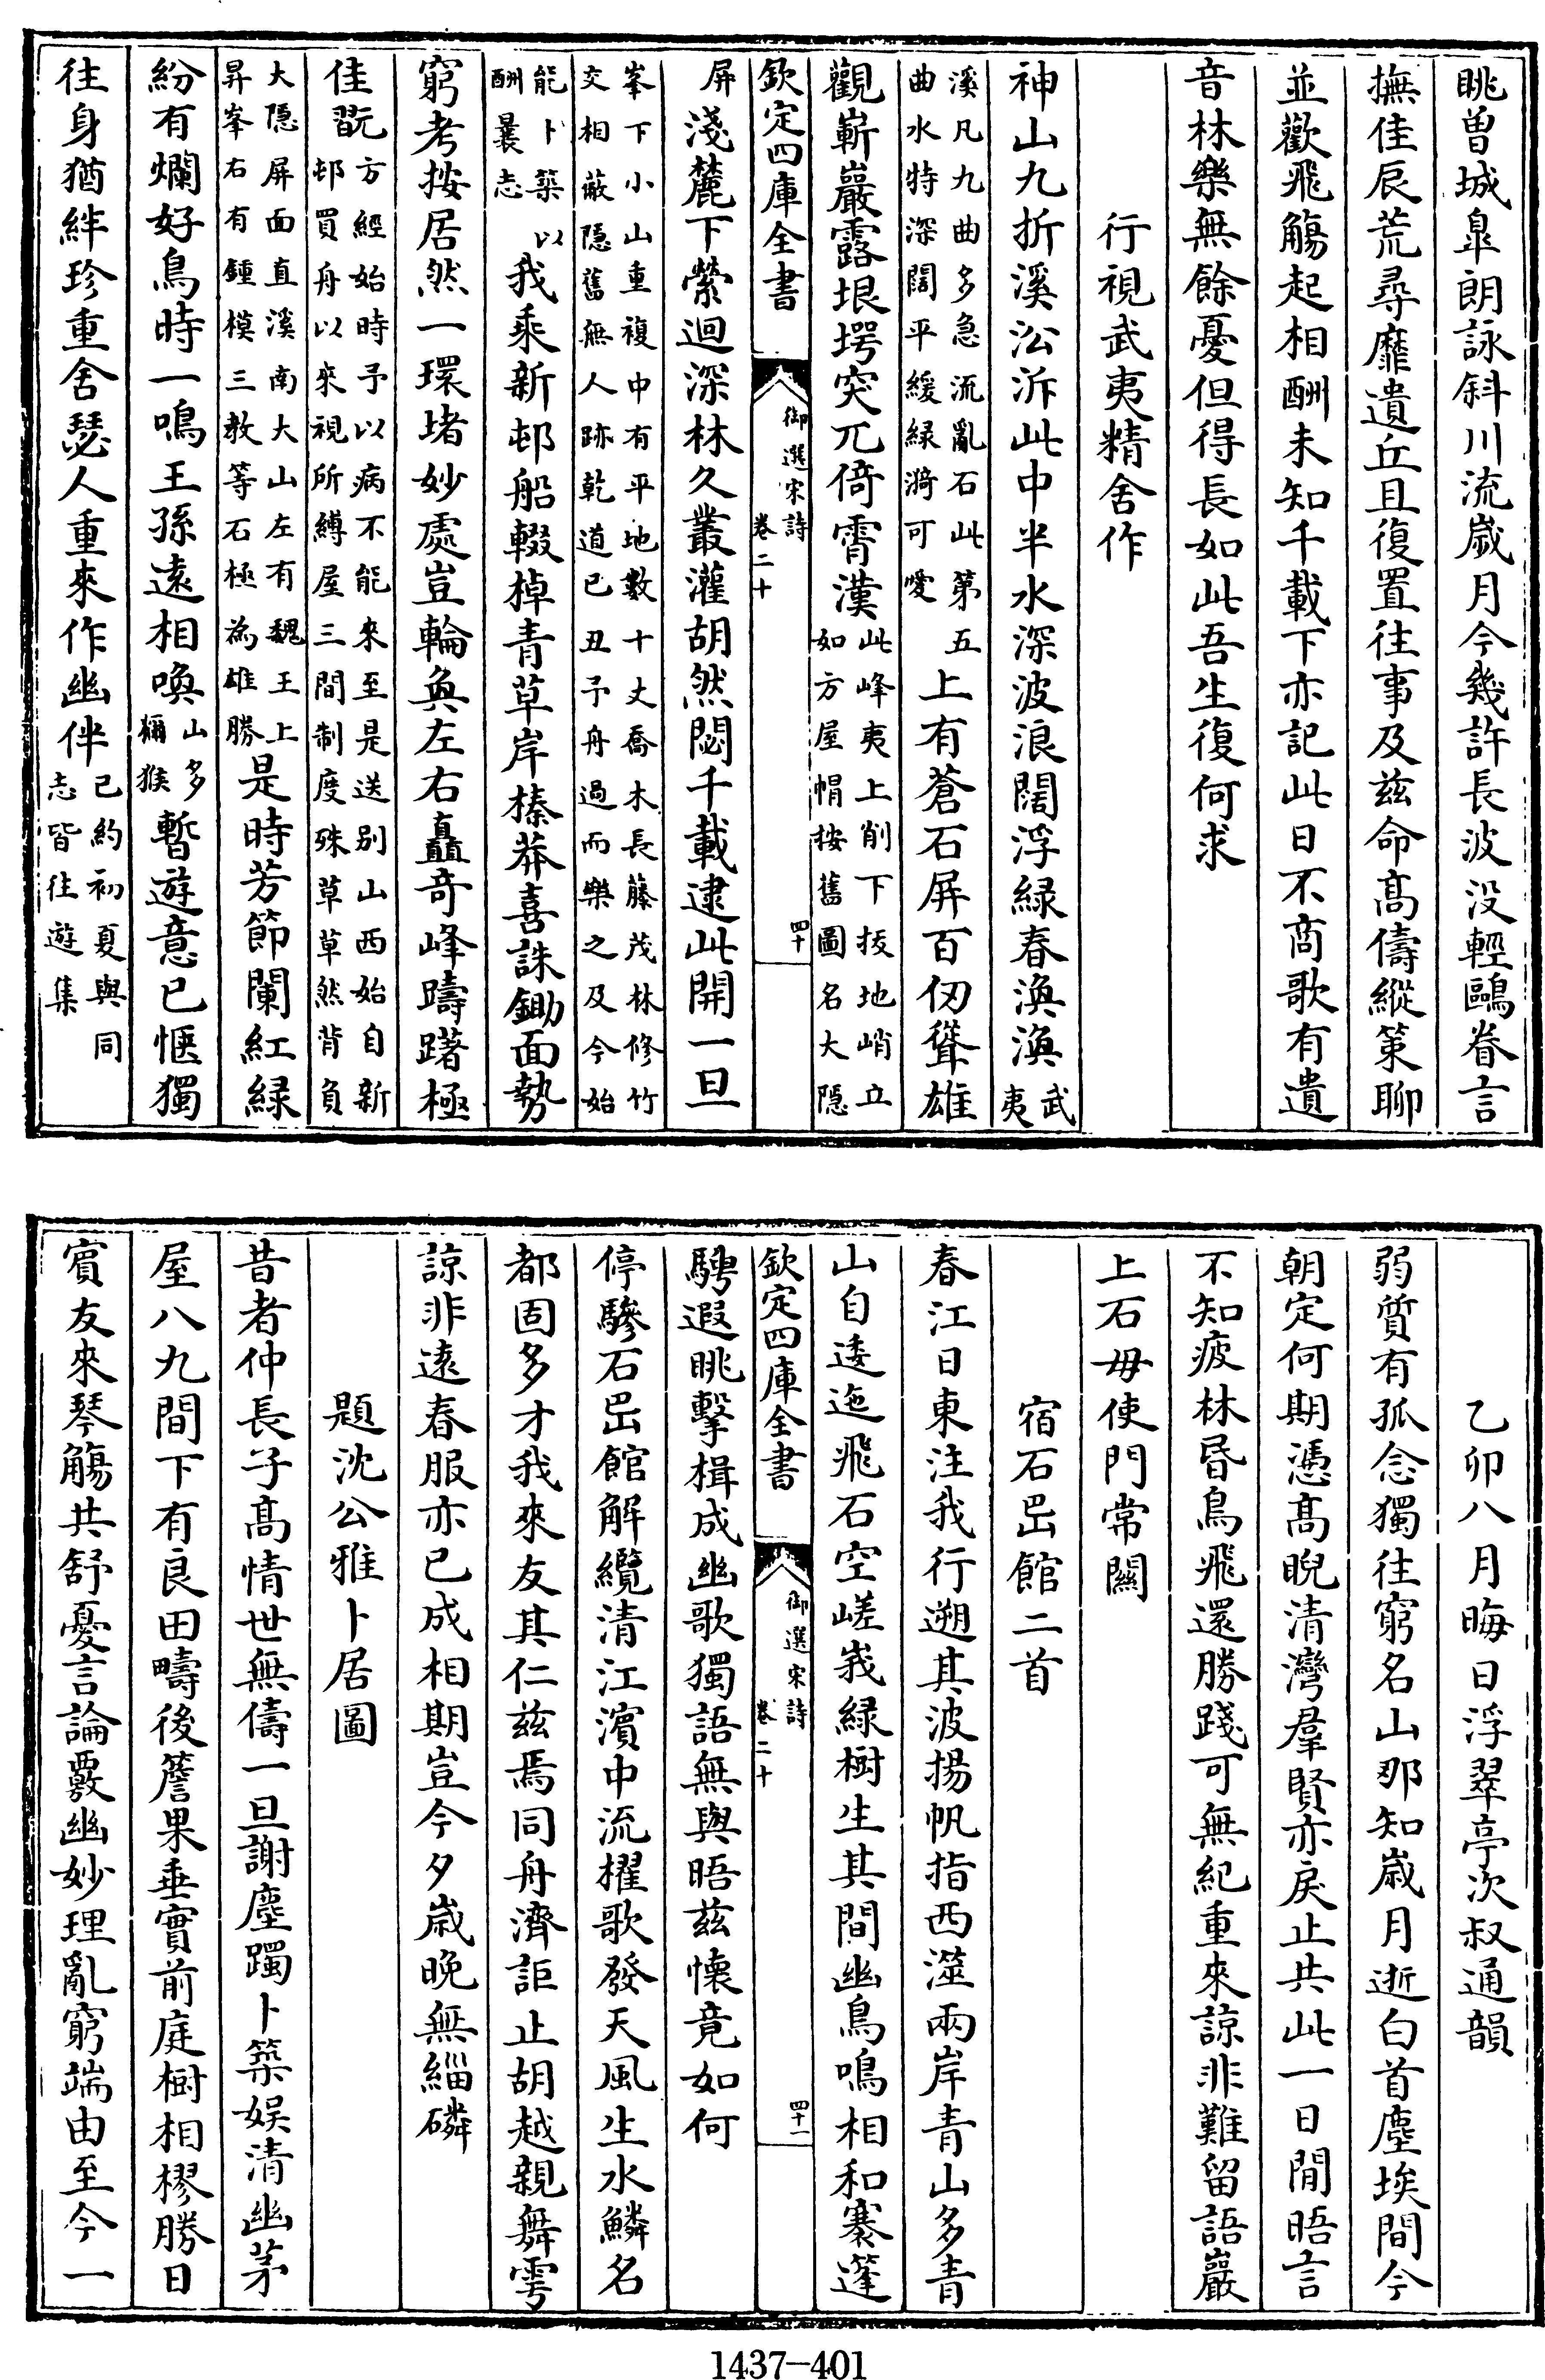 眺曽城臯朗詠斜川流嵗月今幾許長波没輕鷗眷言
撫佳辰荒尋靡遺丘且復置往事及兹命髙儔縱策聊
並歡飛觴起相酬未知千載下亦記此日不商歌有遺
音林樂無餘憂但得長如此吾生復何求
行視武夷精舍作
神山九折溪沿泝此中半水深波浪闊浮緑春渙渙武夷
溪凡九曲多急流亂石此第五
曲水特深闊平緩緑漪可愛
上有蒼石屏百仞聳雄
觀嶄巖露垠堮突兀倚霄漢此峰夷上削下拔地峭立
如方屋帽按舊圖名大隠
欽定四庫全書
御選宋詩
卷二十
四十
屏
淺麓下縈迴深林久叢灌胡然閟千載逮此開一旦
峯下小山重複中有平地數十丈喬木長藤茂林修竹
交相蔽隠舊無人跡乾道己丑予舟過而樂之及今始
能卜築以
酬曩志
我乘新邨船輟棹青草岸榛莽喜誅鋤面勢
窮考按居然一環堵妙處豈輪奐左右矗竒峰躊躇極
佳翫方經始時予以病不能來至是送别山西始自新
邨買舟以來視所縛屋三間制度殊草草然背負
大隠屏面直溪南大山左有魏王上
昇峯右有鍾模三教等石極為雄勝
是時芳節闌紅緑
紛有爛好鳥時一鳴王孫逺相喚山多
獼猴
暫遊意已愜獨
往身猶絆珍重舍瑟人重來作幽伴已約初夏與同
志皆往遊集
乙卯八月晦日浮翠亭次叔通韻
弱質有孤念獨往窮名山那知嵗月逝白首塵埃間今
朝定何期憑髙睨清灣羣賢亦戾止共此一日閒晤言
不知疲林昏鳥飛還勝踐可無紀重來諒非難留語巖
上石毋使門常關
宿石岊館二首
春江日東注我行遡其波揚帆指西澨兩岸青山多青
山自逶迤飛石空嵯峩緑樹生其間幽鳥鳴相和褰篷
欽定四庫全書
御選宋詩
卷二十
四十一
騁遐眺擊楫成幽歌獨語無與晤兹懐竟如何
停驂石岊館解纜清江濵中流櫂歌發天風生水鱗名
都固多才我來友其仁兹焉同舟濟詎止胡越親舞雩
諒非逺春服亦已成相期豈今夕嵗晚無緇磷
題沈公雅卜居圖
昔者仲長子髙情世無儔一旦謝塵躅卜築娱清幽茅
屋八九間下有良田疇後簷果垂實前庭樹相樛勝日
賓友來琴觴共舒憂言論覈幽妙理亂窮端由至今一
1437—401